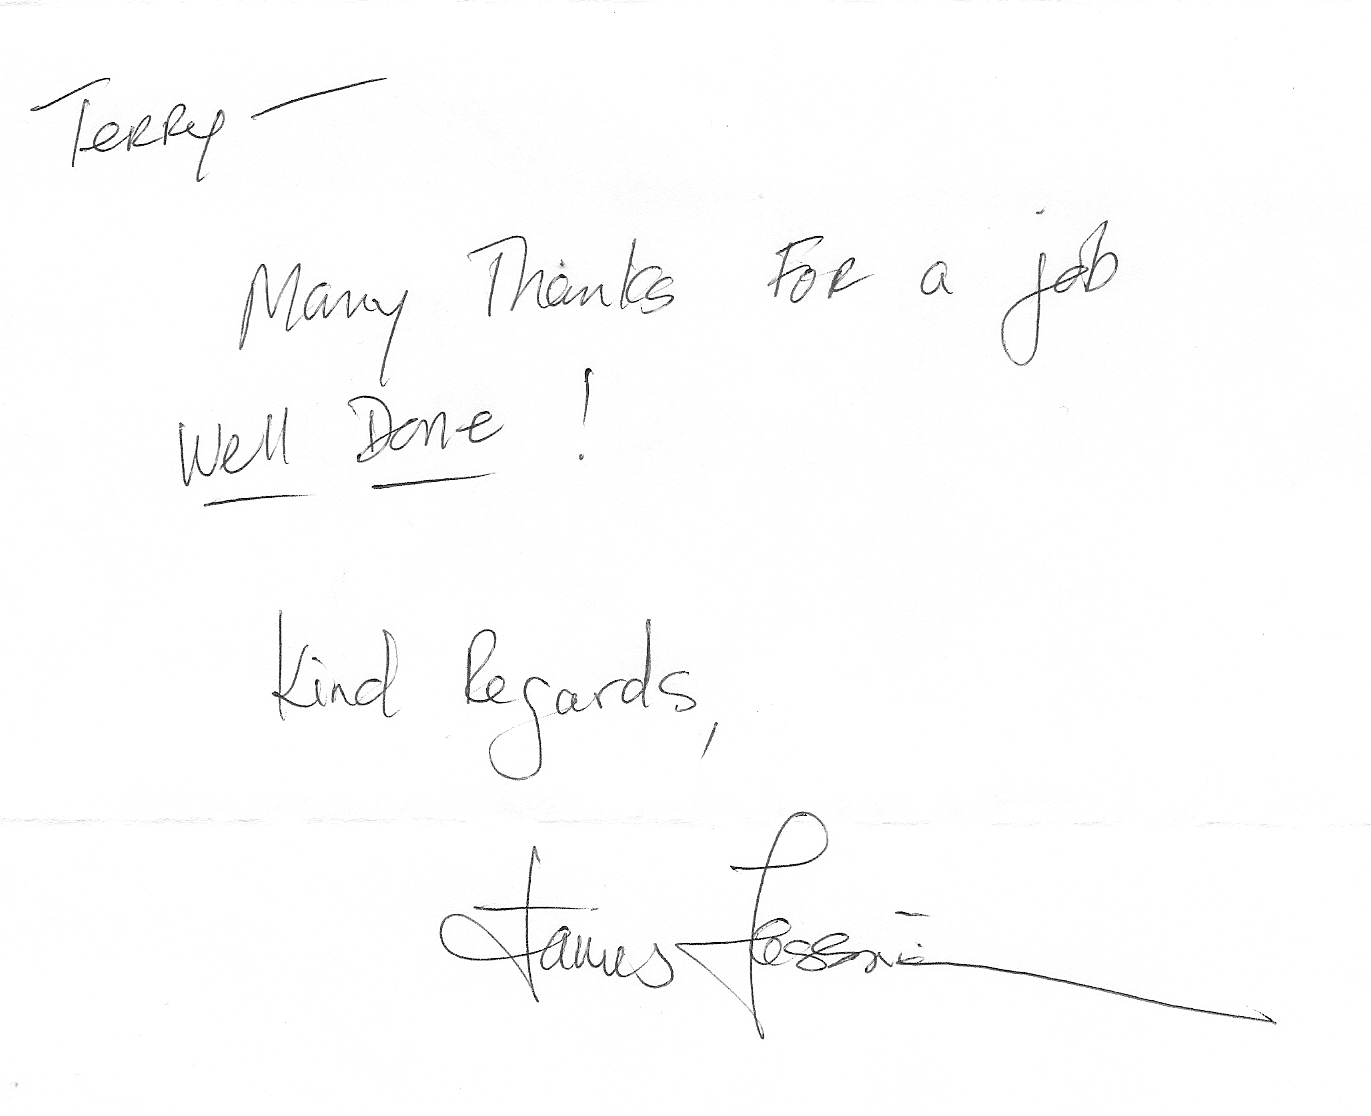 Terry —
Many Thanks For a job
Well Done !
Kind Regards,
James